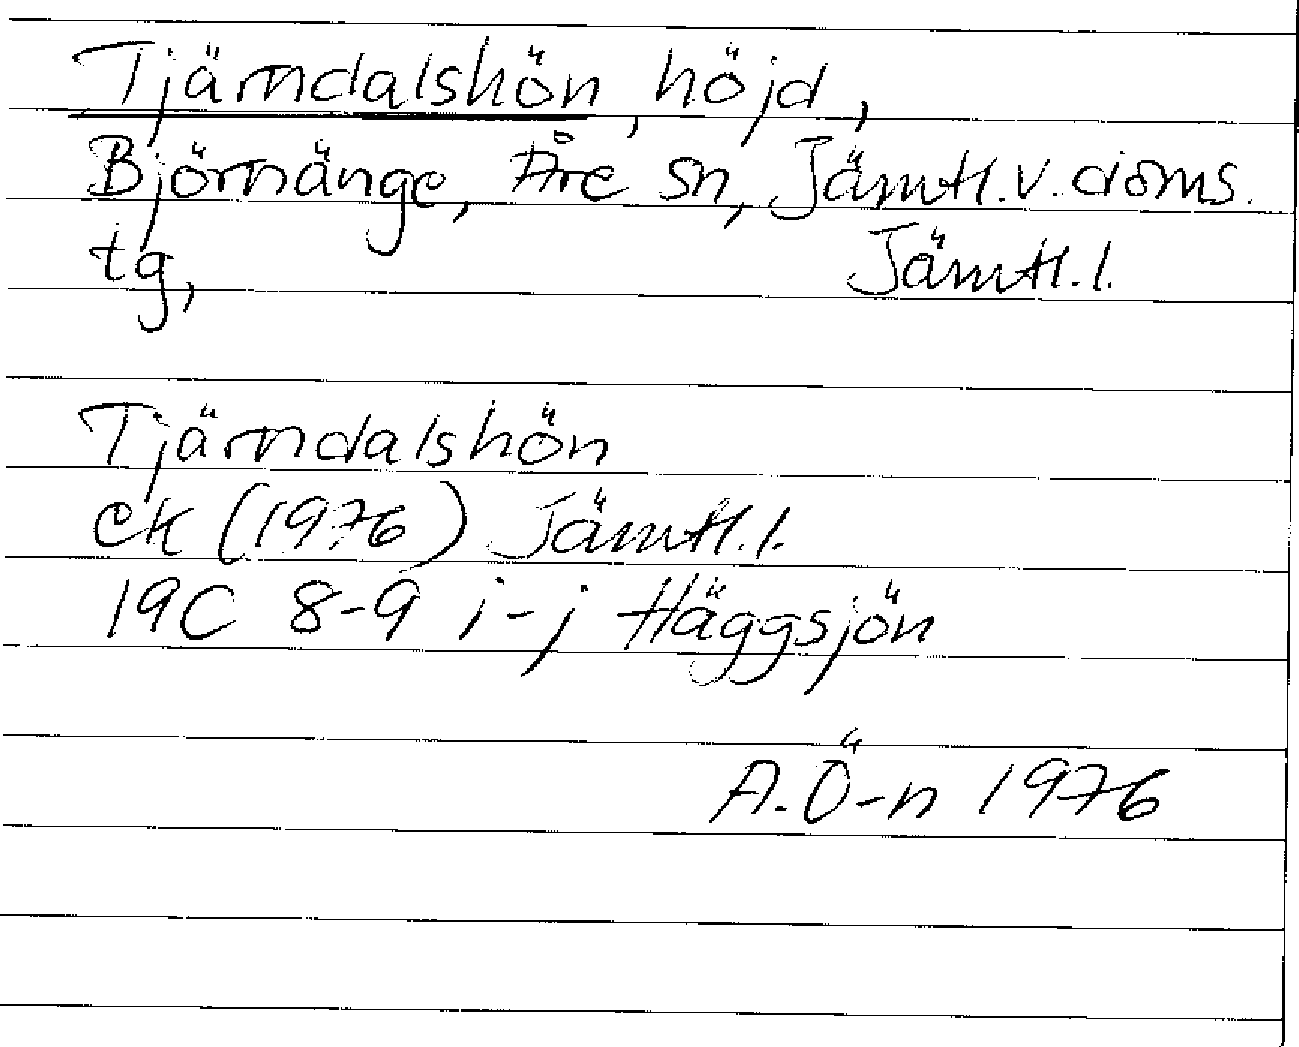 Tjärndalshön, höjd,
Björnänge, Åre sn, Jämtl.v. doms.
tg, Jämtl.l.
Tjärndalshön
ek (1976) Jämtl.l.
19C 8-9 i-j Häggsjön
A.Ö-n 1976